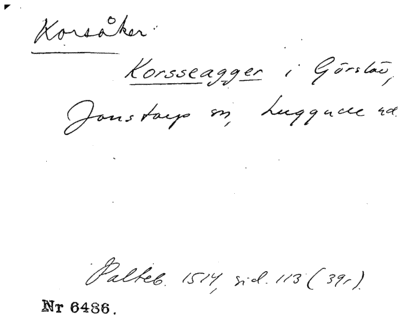 Korsåker:
Korsseagger i Görslöv,
Jonstorp sn, Luggude hd.
Palteb. 1514, sid. 113 (39r).
Nr 6486.